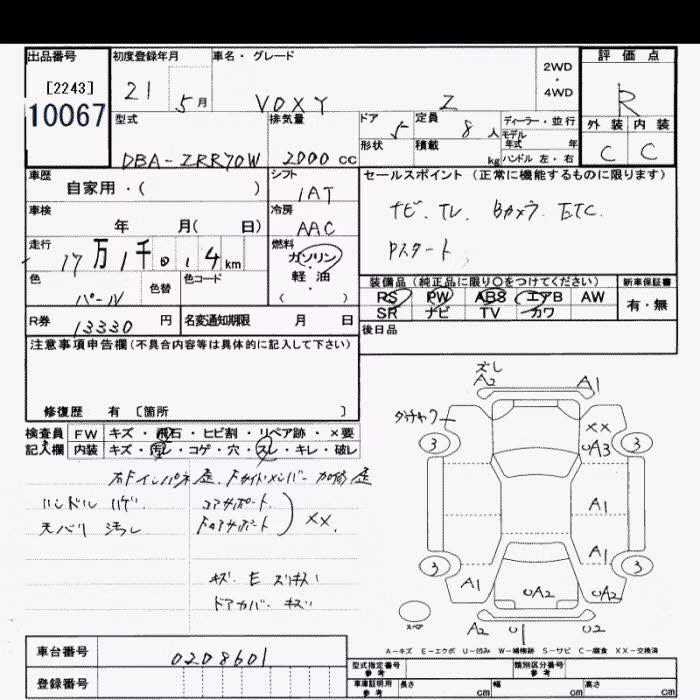 出品番号
[2243]
10067
初度登録年月
21 5月
車名・グレード
VOXY Z
2WD
・
4WD
評価点
R
外装 内装
C C
型式
DBA-ZRR70W
排気量
2000 cc
ドア 5
形状
定員 8 人
積載 kg
ディーラー・並行
モデル年式 年
ハンドル 左・右
車歴
自家用・( )
シフト
IAT
車検
年 月( 日)
冷房
AAC
走行
17万1千 km
燃料
ガソリン
・
軽油
( )
色
パール
色替
色コード
R券 13330 円
名変通知期限 月 日
セールスポイント(正常に機能するものに限ります)
ナビ. TV. Bカメラ. ETC.
Pスタート
装備品(純正品に限り〇をつけてください)
RS PW ABS エアB AW
SR ナビ TV カワ
新車保証書
有・無
後日品
注意事項申告欄(不具合内容等は具体的に記入して下さい)
修復歴 有 〔箇所 〕
検査員
記入欄
FW キズ・飛石・ヒビ割・リペア跡・×要
内装 キズ・汚レ・コゲ・穴・スレ・キレ・破レ
ハンドル ハゲ
天バリ 汚レ
コアサポート
XX.
キズ. E スリキズ
ドアカバー キズ
ズレ
A2 A1
XX
3 3
UA3
A1
A1
3 3
A1 UA2 UA2
スペア
A2 U1 U2
A-キズ E-エクボ U-凹み W-補修跡 S-サビ C-腐食 XX-交換済
車台番号 0208601
登録番号
型式指定番号
参考
類別区分番号
参考
車庫証明用
参考
長さ cm 幅 cm 高さ cm